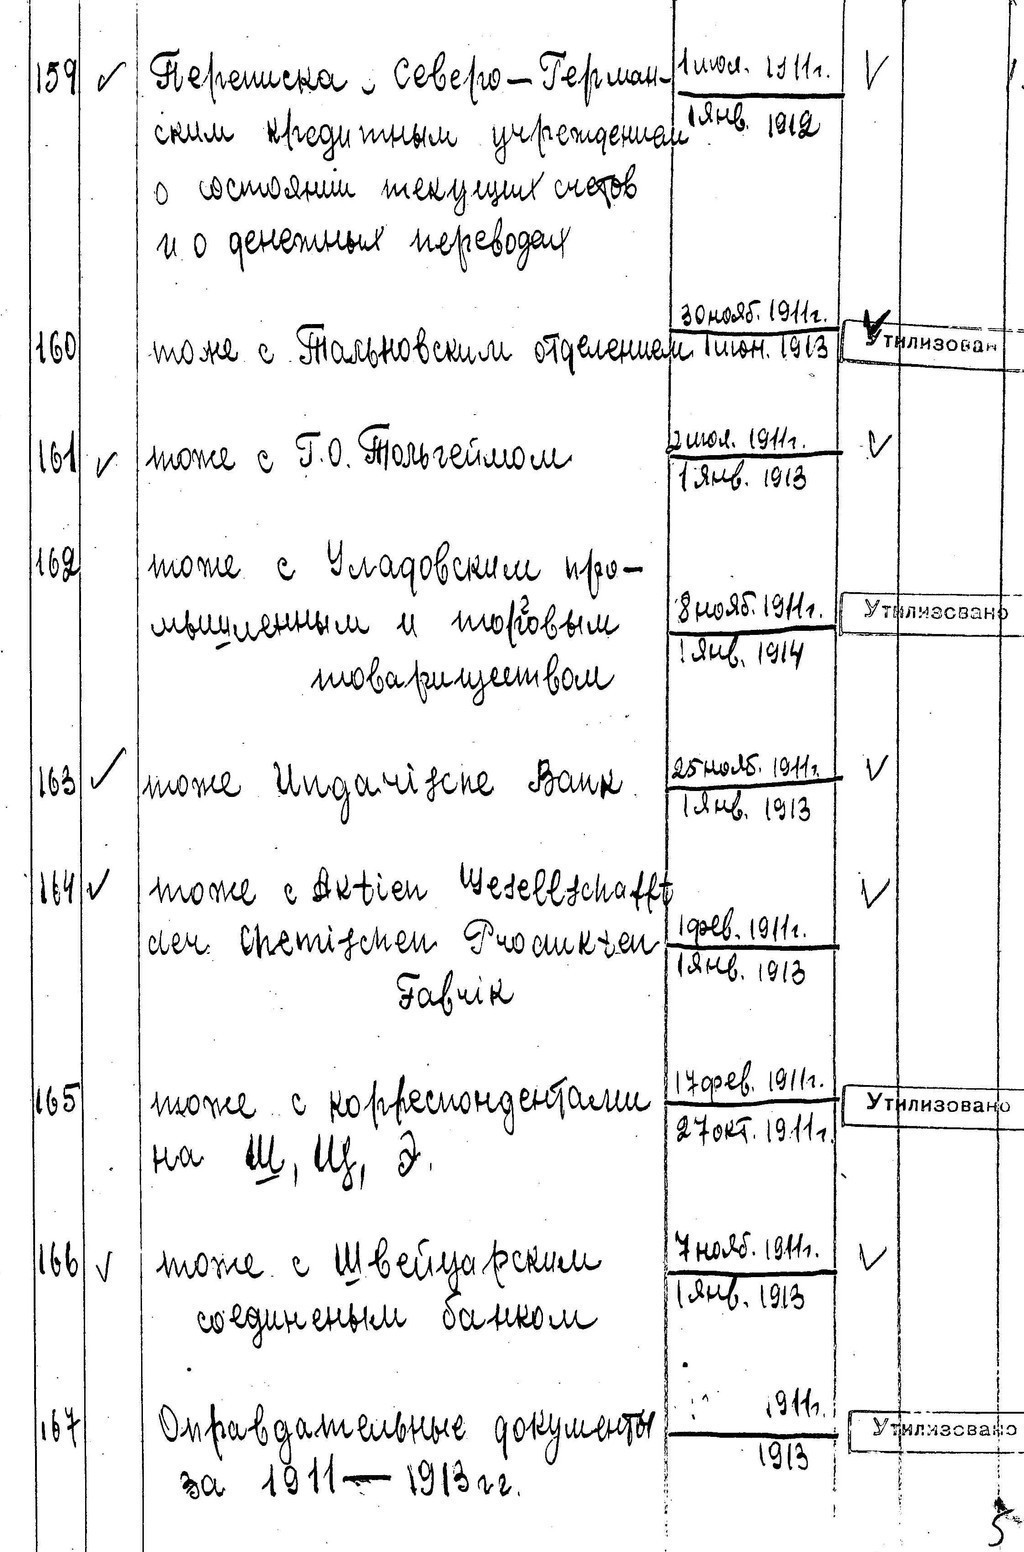 159 Переписка с Северо-Герман- 1 июл. 1911г.
ским кредитным учреждением 1 янв. 1912
о состоянии текущих счетов
и о денежных переводах
30 нояб. 1911г.
160 тоже с Тальновским отделением 1 июн. 1913 Утилизован
161 тоже с Г.О. Тольгеймом 2 июл. 1911г.
1 янв. 1913
162 тоже с Уладовским про-
мышленным и торговым 8 нояб. 1911г. Утилизовано
товариществом 1 янв. 1914
163 тоже Ungarische Bank 25 нояб. 1911г.
1 янв. 1913
164 тоже с Aktien Gesellschafft
der Chemischen Produkten 1 фев. 1911г.
Fabrik 1 янв. 1913
165 тоже с корреспондентами 17 фев. 1911г. Утилизовано
на Ш, Щ, Э. 27 окт. 1911г.
166 тоже с Швейцарским 7 нояб. 1911г.
соединеным банком 1 янв. 1913
167 Оправдательные документы 1911г. Утилизовано
за 1911-1913 гг. 1913
5